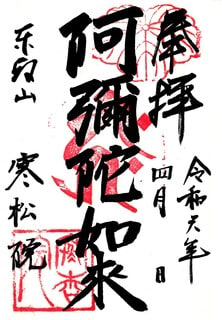 奉拝
令和六年
四月 日
阿彌陀如来
東叡山 寒松院